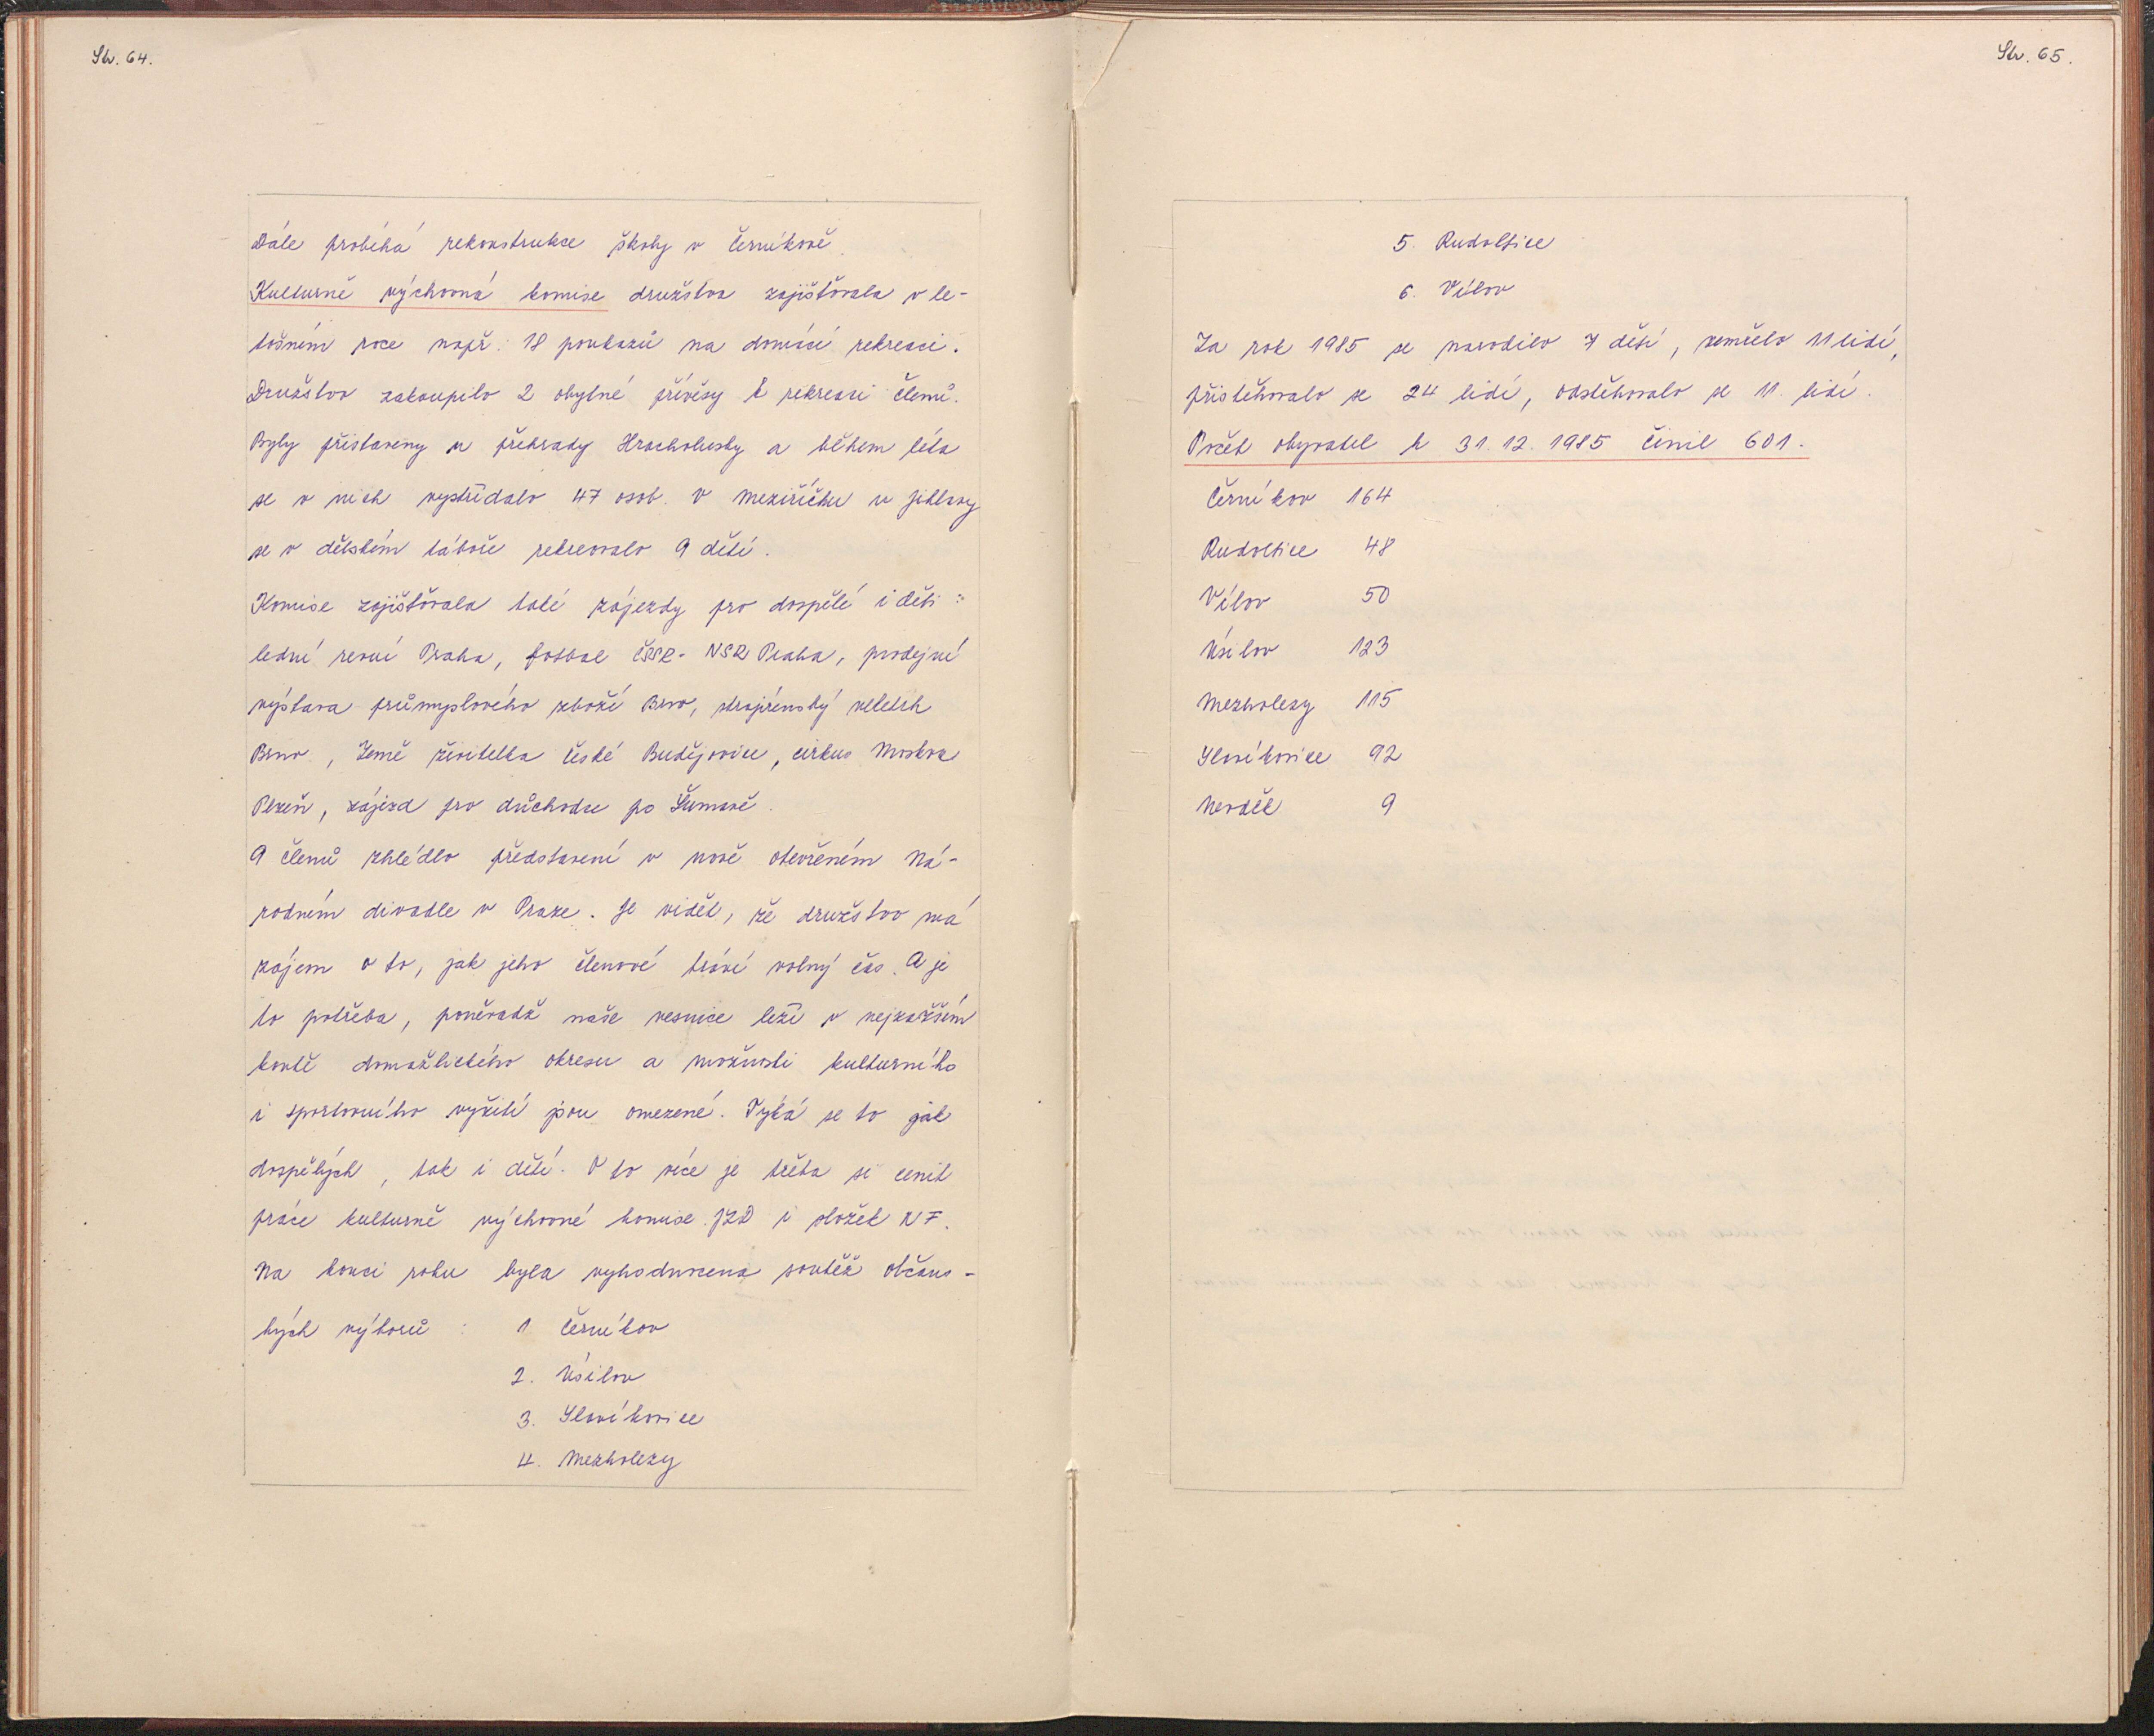 Str. 64.
Dále probíhá rekonstrukce školy v Černíkově.
Kulturně výchovná komise družstva zajišťovala v le-
tošním roce např. 18 poukazů na domácí rekreaci.
Družstvo zakoupilo 2 obytné přívěsy k rekreaci členů.
Byly přistaveny u přehrady Hracholusky a během léta
se v nich vystřídalo 47 osob. V Meziříčku u Jihlavy
se v dětském táboře rekreovalo 9 dětí.
Komise zajišťovala také zájezdy pro dospělé i děti:
lední revui Praha, fotbal ČSSR - NSR Praha, prodejní
výstava průmyslového zboží Brno, strojírenský veletrh
Brno, Země živitelka České Budějovice, cirkus Moskva
Plzeň, zájezd pro důchodce po Šumavě.
9 členů zhlédlo představení v nově otevřeném Ná-
rodním divadle v Praze. Je vidět, že družstvo má
zájem o to, jak jeho členové tráví volný čas. A je
to potřeba, poněvadž naše vesnice leží v nejzazším
koutě domažlického okresu a možnosti kulturního
i sportovního vyžití jsou omezené. Týká se to jak
dospělých, tak i dětí. O to více je třeba si cenit
práce kulturně výchovné komise JZD i složek NF.
Na konci roku byla vyhodnocena soutěž občans-
kých výborů : 1 Černíkov
2. Úsilov
3. Slavíkovice
4. Mezholezy
Str. 65.
5. Rudoltice
6. Vílov
Za rok 1985 se narodilo 7 dětí, zemřelo 11 lidí,
přistěhovalo se 24 lidí, odstěhovalo se 11 lidí.
Počet obyvatel k 31.12.1985 činil 601.
Černíkov 164
Rudoltice 48
Vílov 50
Úsilov 123
Mezholezy 115
Slavíkovice 92
Nevděk 9